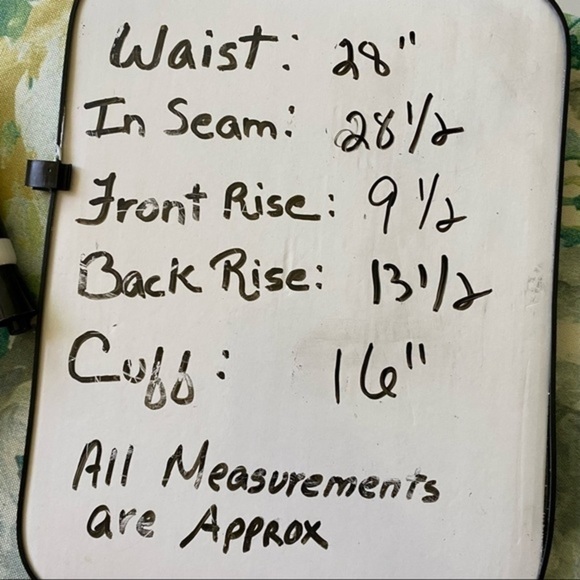 Waist: 28"
In Seam: 28 1/2
Front Rise: 9 1/2
Back Rise: 13 1/2
Cuff: 16"
All Measurements
are Approx